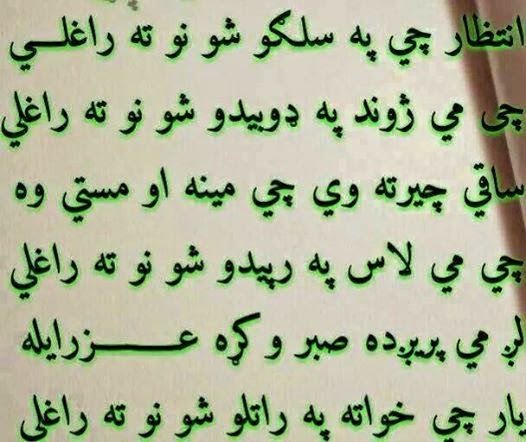 انتظار چي په سلګو شو نو ته راغلـــي
چی مي ژوند په ډوبیدو شو نو ته راغلي
ساقي چیرته وي چي مینه او مستي وه
چي مي لاس په رپیدو شو نو ته راغلي
لږ مي پریږده صبر وکړه عـــــزرایله
یار چي خواته په راتلو شو نو ته راغلی